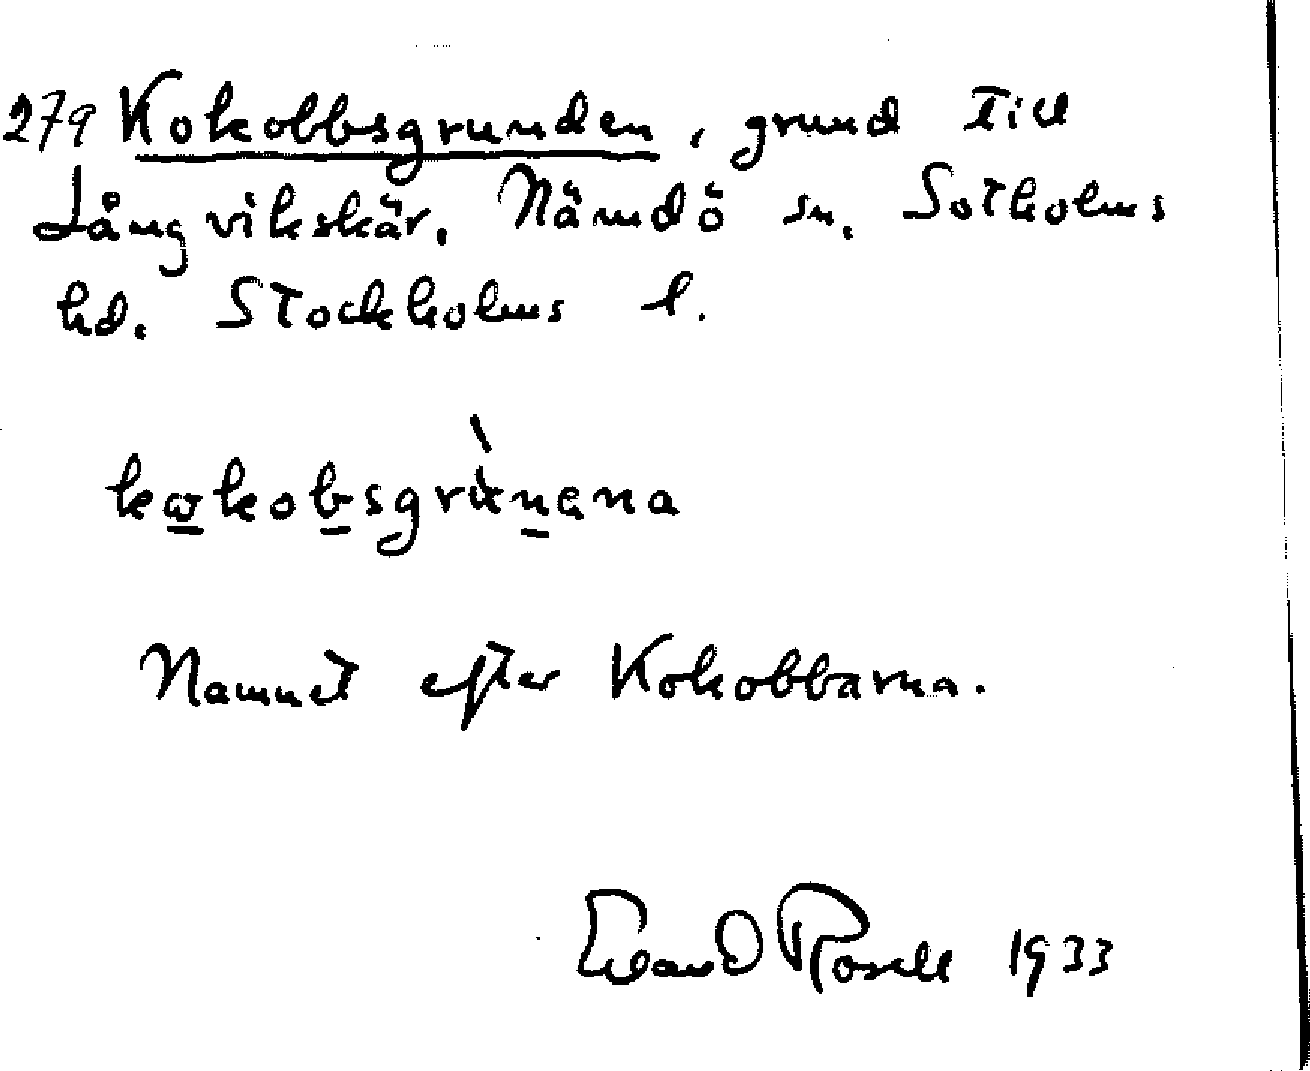 279 Kokobbsgrunden, grund till
Långvikskär, Nämdö sn, Sotholms
hd. Stockholms l.
Namnet efter Kokobbarna.
Rosell 1933